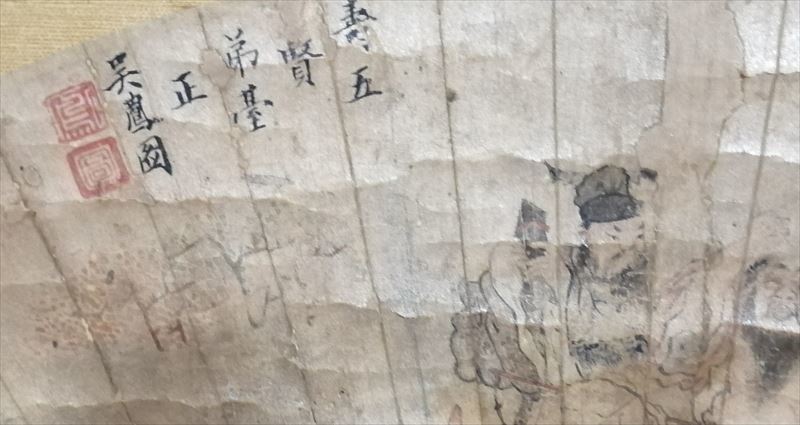 壽五
賢
弟臺
正
吳鳳